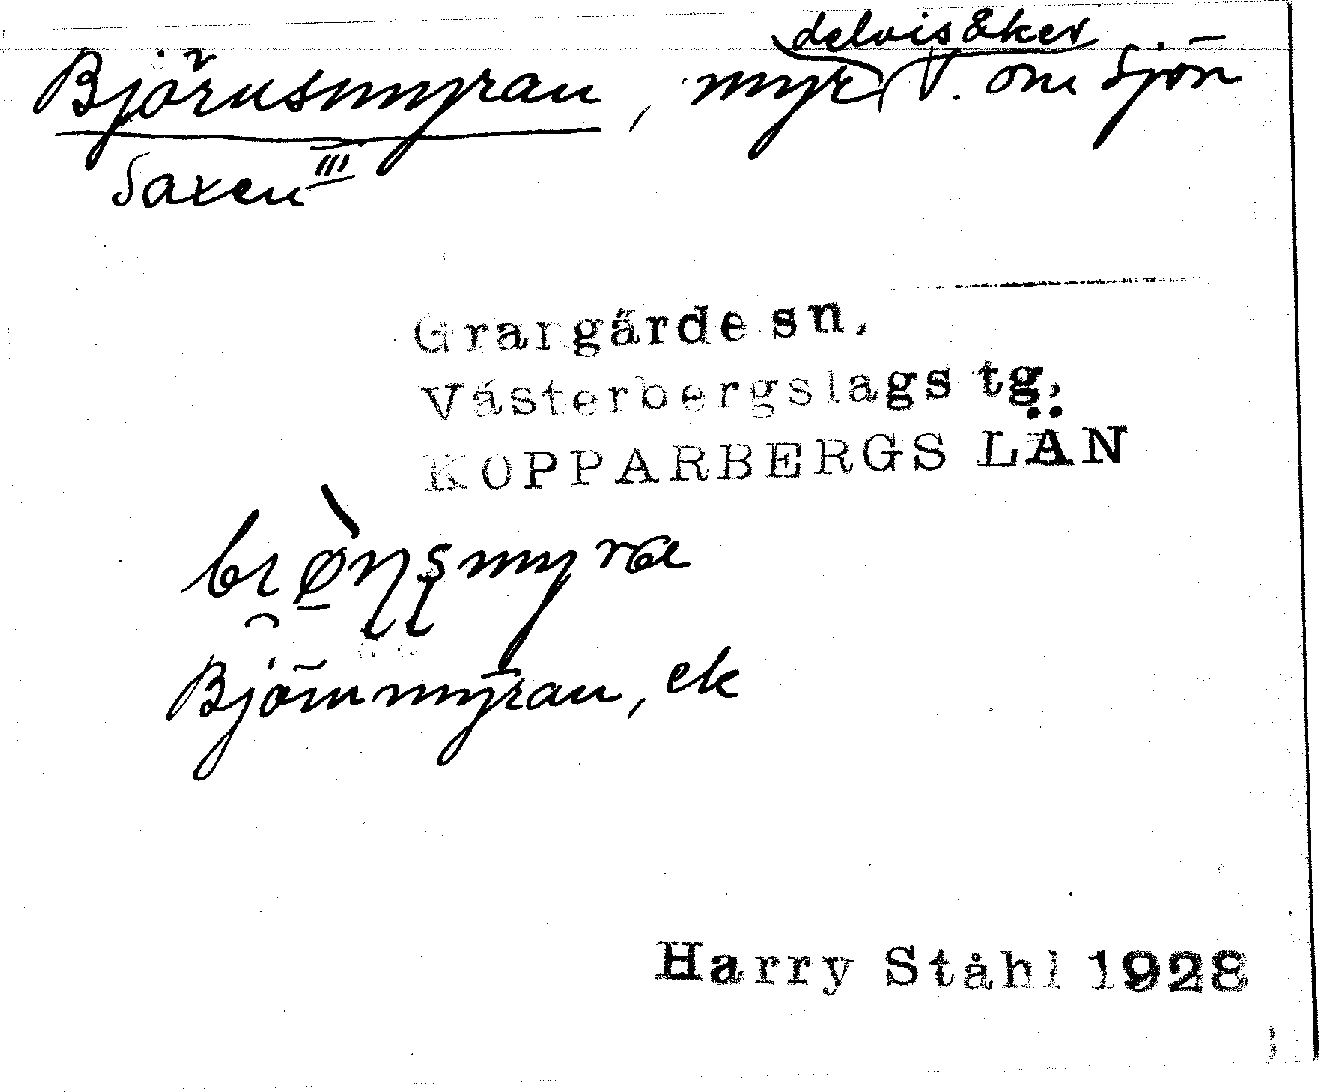 Björnsmyran, myr (delvis åker V. om sjön
Saxen III
Grangärde sn,
Västerbergslags tg,
KOPPARBERGS LÄN
Björnmyran, ek
Harry Ståhl 1928